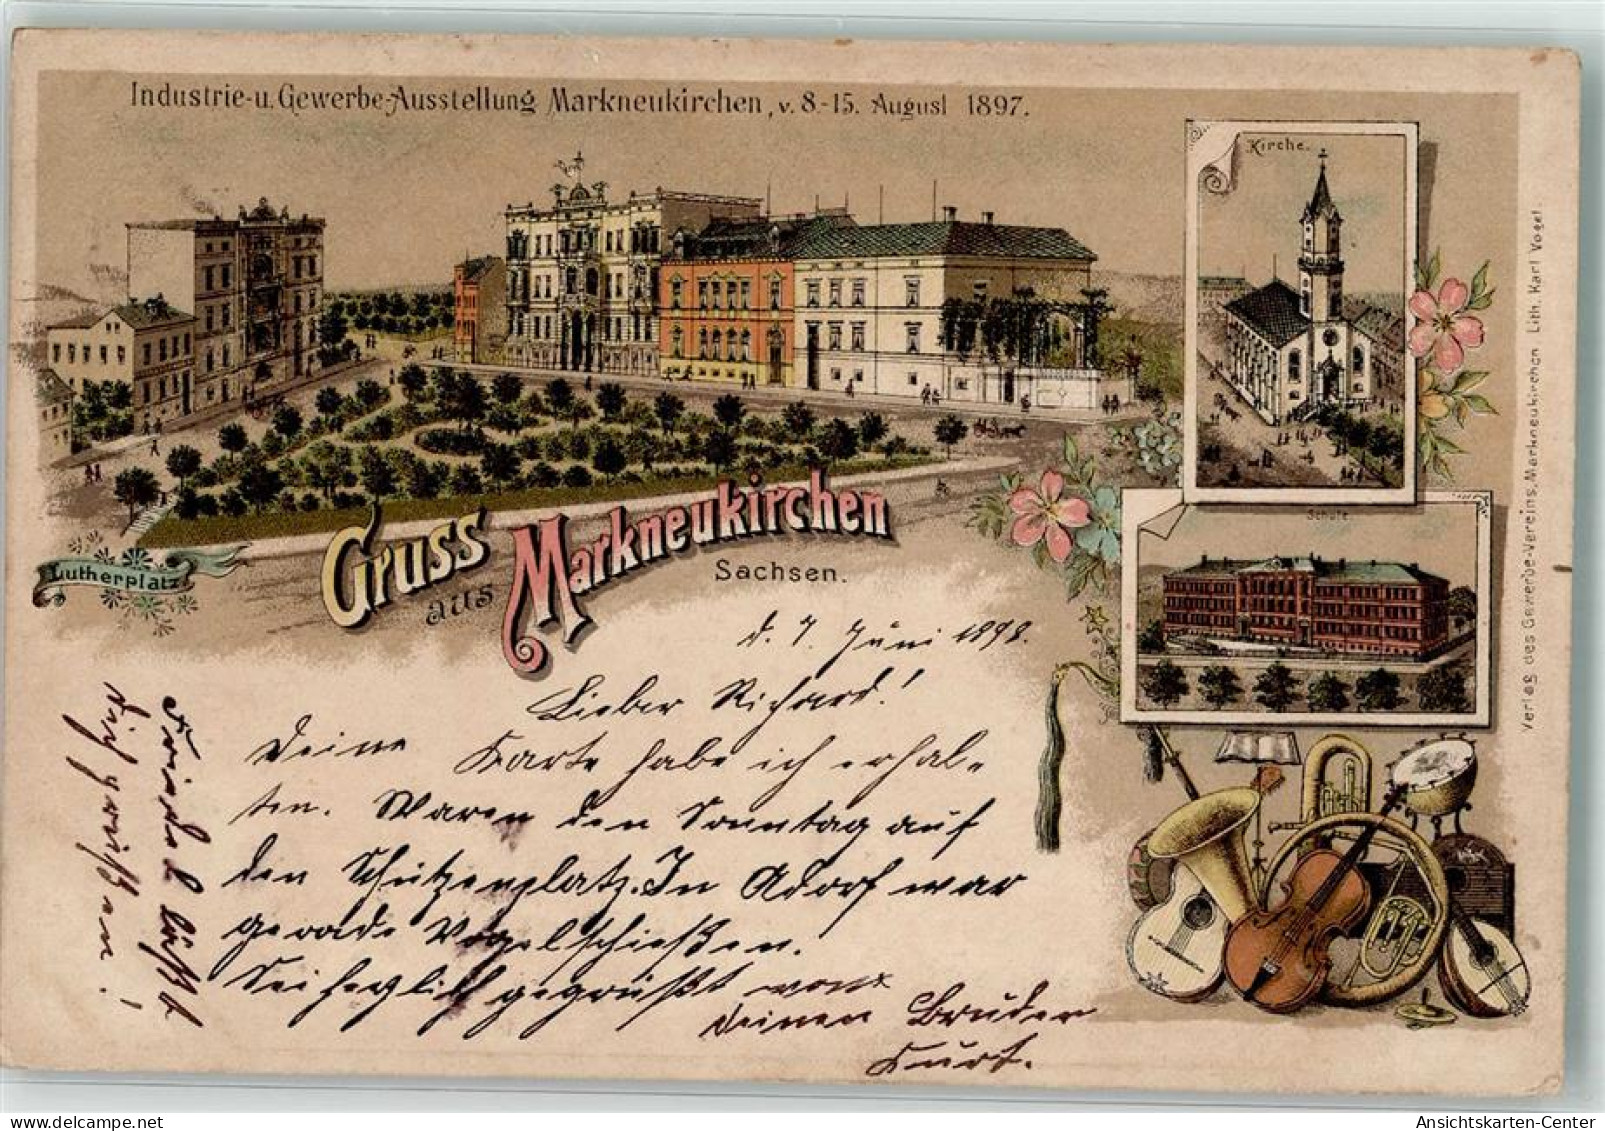 Industrie- u. Gewerbe-Ausstellung Markneukirchen, v. 8.-15. August 1897.
Kirche.
Schule
Lutherplatz
Gruss
aus Markneukirchen
Sachsen.
Verlag des Gewerbe-Vereins, Markneukirchen Lith. Karl Vogel.
d. 7. Juni 1898.
Lieber Richard!
Deine Karte habe ich erhal-
ten. Waren den Sonntag auf
den Schützenplatz. In Adorf war
gerade Vogelschießen.
Sei herzlich gegrüßt von
deinen Bruder
Kurt.
Frieda läßt
dich grüßen!
Ansichtskarten-Center